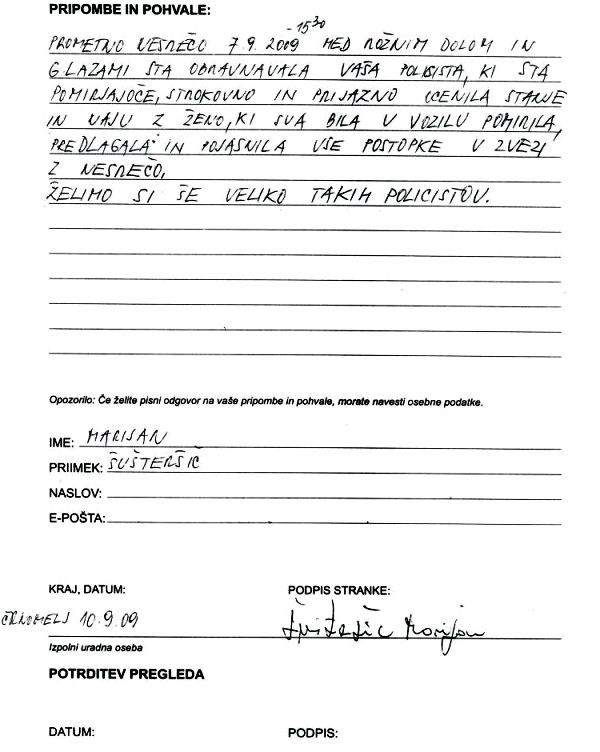 PRIPOMBE IN POHVALE:
- 1530
PROMETNO NESREČO 7.9.2009 MED ROŽNIM DOLOM IN
GLAZAMI STA OBRAVNAVALA VAŠA POLISISTA, KI STA
POMIRJAJOČE, STROKOVNO IN PRIJAZNO OCENILA STANJE
IN NAJU Z ŽENO, KI SVA BILA V VOZILU POMIRILA,
PREDLAGALA IN POJASNILA VSE POSTOPKE V ZVEZI
Z NESREČO,
ŽELIMO SI ŠE VELIKO TAKIH POLICISTOV.
Opozorilo: Če želite pisni odgovor na vaše pripombe in pohvale, morate navesti osebne podatke.
IME: MARIJAN
PRIIMEK: ŠUŠTERŠIČ
NASLOV:
E-POŠTA:
KRAJ, DATUM: PODPIS STRANKE:
ČRNOMELJ 10.9.09 Šušteršič Marijan
Izpolni uradna oseba
POTRDITEV PREGLEDA
DATUM: PODPIS: